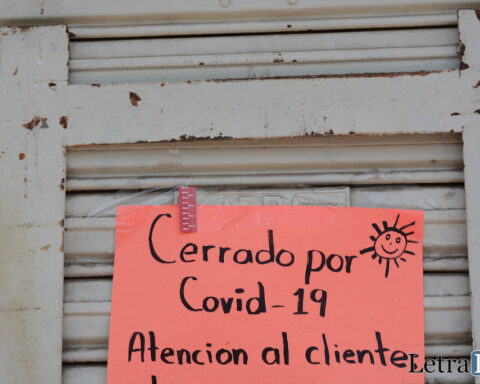 Cerrado por
Covid-19
Atencion al cliente
Letra